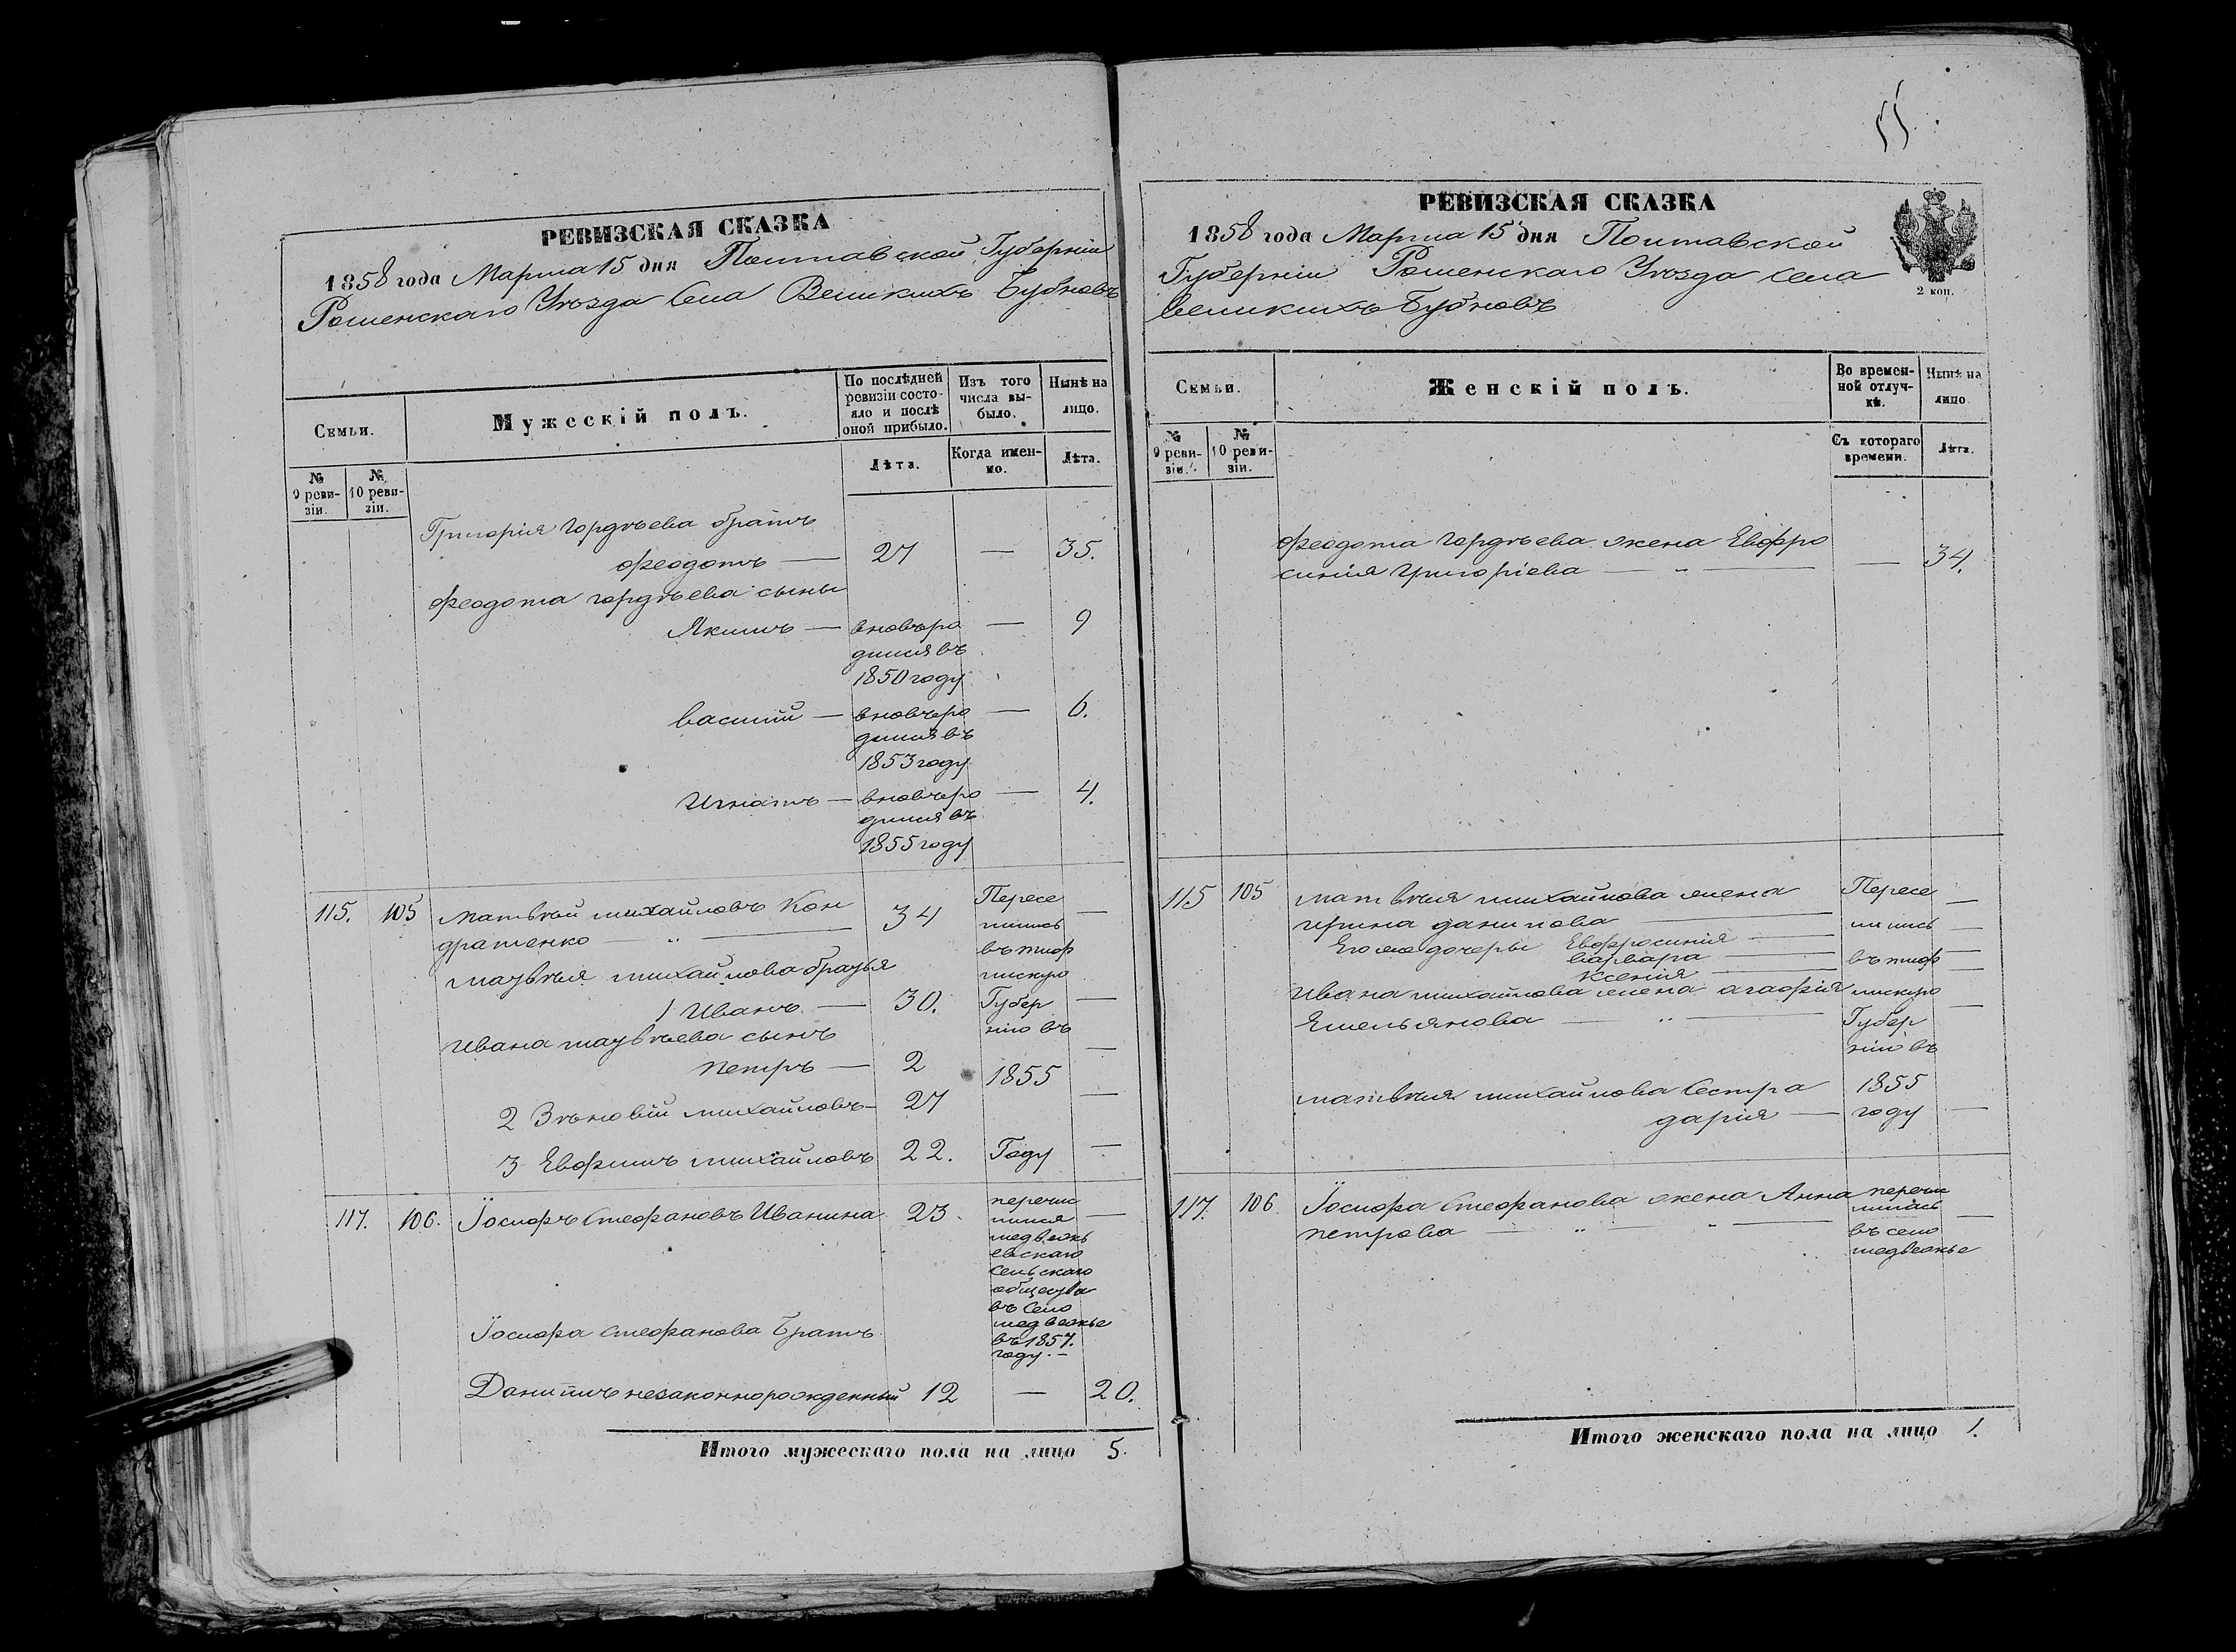 РЕВИЗСКАЯ СКАЗКА
1858 года Марта 15 дня Полтавской Губерніи
Роменскаго Уѣзда Села Великихъ Бубновъ
Семьи.
Мужескій полъ.
По послѣдней ревизіи состояло и послѣ оной прибыло.
Изъ того числа выбыло.
Нынѣ на лицо.
№ 9 ревизіи.
№ 10 ревизіи.
Лѣта.
Когда именно.
Лѣта.
Григорія Гордѣева братъ
Феодотъ — 27 — 35.
Феодота Гордѣева сыны
Якимъ — вновьро — 9
дился въ
1850 году
Василій — вновьро — 6.
дился въ
1853 году
Игнатъ — вновьро — 4.
дился въ
1855 году
115. 105 Матвѣй Михайловъ Кон 34 Пересе —
дратенко — " — лились
въ тиф
Матвѣя Михайлова братья лискую
1 Иванъ — 30. Губер —
Ивана Матвѣева сынъ нію въ
Петръ — 2 1855 —
2 Зѣновій Михайловъ — 27 —
3 Евфимъ Михайловъ 22. Году —
117. 106. Іосифъ Стефановъ Иванина 23. перечис —
лился
медвежь
евскаго
сельскаго
общества
въ село
Іосифа Стефанова Братъ медвежье
въ 1857.
году. —
Даниилъ незаконнорожденный 12 — 20.
Итого мужескаго пола на лицо 5.
55
РЕВИЗСКАЯ СКАЗКА
1858 года Марта 15 дня Полтавской
Губерніи Роменскаго Уѣзда Села
Великихъ Бубновъ
2 коп.
Семьи.
Женскій полъ.
Во временной отлучкѣ.
Нынѣ на лицо
№ 9 ревизіи.
№ 10 ревизіи.
Съ котораго времени.
Лѣта.
Феодота Гордѣева жена Евфро
синія Григоріева — " — — 34.
115 105 Матвѣя Михайлова жена Пересе —
Ирина Данилова — лились —
Его же дочеры Евфросинія —
Варвара — въ тиф —
Ксенія — —
Ивана Михайлова жена Агафія лискую
Емельянова — " — Губер —
нію въ
Матвѣя Михайлова Сестра 1855
Дарія — году —
117. 106. Іосифа Стефанова жена Анна перечис
лилась
Петрова — " — " — въ село —
медвежье
Итого женскаго пола на лицо 1.